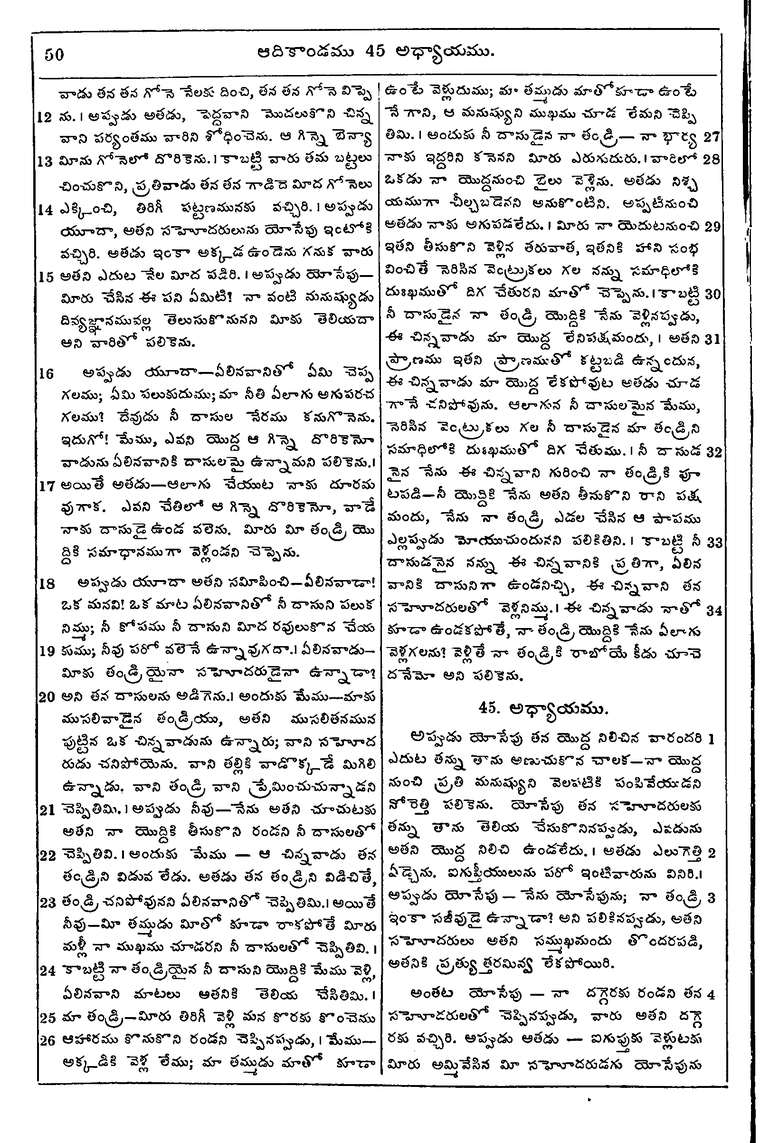 50
ఆదికాండము 45 అధ్యాయము.
వాడు తన తన గోనె నేలకు దించి, తన తన గోనె విప్పె
12 ను. । అప్పుడు అతడు, పెద్దవాని మొదలుకొని చిన్న
వాని పర్యంతము వారిని శోధించెను. ఆ గిన్నె బెన్యా
13 మీను గోనెలో దొరికెను. । కాబట్టి వారు తమ బట్టలు
చించుకొని, ప్రతివాడు తన తన గాడిదె మీద గోనెలు
14 ఎక్కించి, తిరిగీ పట్టణమునకు వచ్చిరి. । అప్పుడు
యూదా, అతని సహోదరులును యోసేపు ఇంటోకి
వచ్చిరి. అతడు ఇంకా అక్కడ ఉండెను గనుక వారు
15 అతని ఎదుట నేల మీద పడిరి. । అప్పుడు యోసేపు—
మీరు చేసిన ఈ పని ఏమిటి? నా వంటి మనుష్యుడు
దివ్యజ్ఞానమువల్ల తెలుసుకొనునని మీకు తెలియదా
అని వారితో పలికెను.
16 అప్పుడు యూదా—ఏలినవానితో ఏమి చెప్ప
గలము; ఏమి పలుకుదుము; మా నీతి ఏలాగు అగుపరచ
గలము? దేవుడు నీ దాసుల నేరము కనుగొనెను.
ఇదుగో! మేము, ఎవని యొద్ద ఆ గిన్నె దొరికెనో
వాడును ఏలినవానికి దాసులమై ఉన్నామని పలికెను. ।
17 అయితే అతడు—ఆలాగు చేయుట నాకు దూరమ
వుగాక. ఎవని చేతిలో ఆ గిన్నె దొరికెనో, వాడే
నాకు దాసుడై ఉండ వలెను. మీరు మీ తండ్రి యొ
ద్దికి సమాధానముగా వెళ్లండని చెప్పెను.
18 అప్పుడు యూదా అతని సమీపించి—ఏలినవాడా!
ఒక మనవి! ఒక మాట ఏలినవానితో నీ దాసుని పలుక
నిమ్ము; నీ కోపము నీ దాసుని మీద రవులుకొన చేయ
19 కుము; నీవు పరో వలెనే ఉన్నావుగదా. । ఏలినవాడు—
మీకు తండ్రియైనా సహోదరుడైనా ఉన్నాడా?
20 అని తన దాసులను అడిగెను. । అందుకు మేము—మాకు
ముసలివాడైన తండ్రియు, అతని ముసలితనమున
పుట్టిన ఒక చిన్నవాడును ఉన్నారు; వాని సహోద
రుడు చనిపోయెను. వాని తల్లికి వాడొక్కడే మిగిలి
ఉన్నాడు. వాని తండ్రి వాని ప్రేమించుచున్నాడని
21 చెప్పితిమి. । అప్పుడు నీవు—నేను అతని చూచుటకు
అతని నా యొద్దికి తీసుకొని రండని నీ దాసులతో
22 చెప్పితివి. । అందుకు మేము — ఆ చిన్నవాడు తన
తండ్రిని విడువ లేడు. అతడు తన తండ్రిని విడిచితే,
23 తండ్రి చనిపోవునని ఏలినవానితో చెప్పితిమి. । అయితే
నీవు—మీ తమ్ముడు మీతో కూడా రాకపోతే మీరు
మళ్లీ నా ముఖము చూడరని నీ దాసులతో చెప్పితివి. ।
24 కాబట్టి నా తండ్రియైన నీ దాసుని యొద్దికి మేము వెళ్లి,
ఏలినవాని మాటలు ఆతనికి తెలియ చేసితిమి. ।
25 మా తండ్రి—మీరు తిరిగీ వెళ్లి మన కొరకు కొంచెము
26 ఆహారము కొనుకొని రండని చెప్పినప్పుడు, । మేము—
అక్కడికి వెళ్ల లేము; మా తమ్ముడు మాతో కూడా
ఉంటే వెళ్లుదుము; మా తమ్ముడు మాతో కూడా ఉంటే
నే గాని, ఆ మనుష్యుని ముఖము చూడ లేమని చెప్పి
తిమి. । అందుకు నీ దాసుడైన నా తండ్రి— నా భార్య 27
నాకు ఇద్దరిని కనెనని మీరు ఎరుగుదురు. । వారిలో 28
ఒకడు నా యొద్దనుంచి బైలు వెళ్లెను. అతడు నిశ్చ
యముగా చీల్చబడెనని అనుకొంటిని. అప్పటినుంచి
అతడు నాకు అగుపడలేదు. । మీరు నా యెదుటనుంచి 29
ఇతని తీసుకొని వెళ్లిన తరువాత, ఇతనికి హాని సంభ
వించితే నెరిసిన వెంట్రుకలు గల నన్ను సమాధిలోకి
దుఃఖముతో దిగ చేతురని మాతో చెప్పెను. । కాబట్టి 30
నీ దాసుడైన నా తండ్రి యొద్దికి నేను వెళ్లినప్పుడు,
ఈ చిన్నవాడు మా యొద్ద లేనిపక్షమందు, । అతని 31
ప్రాణము ఇతని ప్రాణముతో కట్టబడి ఉన్నందున,
ఈ చిన్నవాడు మా యొద్ద లేకపోవుట అతడు చూడ
గానే చనిపోవును. ఆలాగున నీ దాసులమైన మేము,
నెరిసిన వెంట్రుకలు గల నీ దాసుడైన మా తండ్రిని
సమాధిలోకి దుఃఖముతో దిగ చేతుము. । నీ దాసుడ 32
నైన నేను ఈ చిన్నవాని గురించి నా తండ్రికి పూ
టపడి—నీ యొద్దికి నేను అతని తీసుకొని రాని పక్ష
మందు, నేను నా తండ్రి ఎడల చేసిన ఆ పాపము
ఎల్లప్పుడు మోయుచుందునని పలికితిని. । కాబట్టి నీ 33
దాసుడనైన నన్ను ఈ చిన్నవానికి ప్రతిగా, ఏలిన
వానికి దాసునిగా ఉండనిచ్చి, ఈ చిన్నవాని తన
సహోదరులతో వెళ్లనిమ్ము. । ఈ చిన్నవాడు నాతో 34
కూడా ఉండకపోతే, నా తండ్రి యొద్దికి నేను ఏలాగు
వెళ్లగలను? వెళ్లితే నా తండ్రికి రాబోయే కీడు చూచె
దనేమో అని పలికెను.
45. అధ్యాయము.
అప్పుడు యోసేపు తన యొద్ద నిలిచిన వారందరి 1
ఎదుట తన్ను తాను అణుచుకొన చాలక—నా యొద్ద
నుంచి ప్రతి మనుష్యుని వెలపటికి పంపివేయుడని
నోరెత్తి పలికెను. యోసేపు తన సహోదరులకు
తన్ను తాను తెలియ చేసుకొనినప్పుడు, ఎవడును
అతని యొద్ద నిలిచి ఉండలేదు. । అతడు ఎలుగెత్తి 2
ఏడ్చెను. ఐగుప్తీయులును పరో ఇంటివారును వినిరి. ।
అప్పుడు యోసేపు — నేను యోసేపును; నా తండ్రి 3
ఇంకా సజీవుడై ఉన్నాడా? అని పలికినప్పుడు, అతని
సహోదరులు అతని సమ్ముఖమందు తొందరపడి,
అతనికి ప్రత్యుత్తరమివ్వ లేకపోయిరి.
అంతట యోసేపు — నా దగ్గెరకు రండని తన 4
సహోదరులతో చెప్పినప్పుడు, వారు అతని దగ్గె
రకు వచ్చిరి. అప్పుడు అతడు — ఐగుప్తుకు వెళ్లుటకు
మీరు అమ్మివేసిన మీ సహోదరుడగు యోసేపును